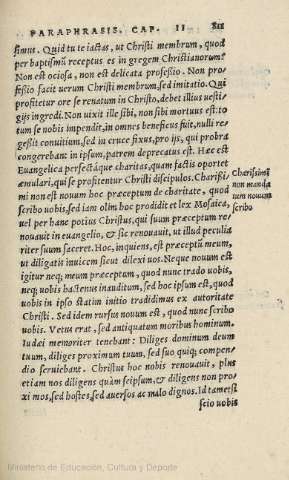 PARAPHRASIS. CAP. II 811
simus. Quid tu te iactas, ut Christi membrum, quod
per baptismũ receptus es in gregem Christianorum?
Non est ociosa, non est delicata professio. Non pro⸗
fessio facit uerum Christi membrum, sed imitatio. Qui
profitetur ore se renatum in Christo, debet illius uesti⸗
gijs ingredi. Non uixit ille sibi, non sibi mortuus est: to
tum se nobis impendit, in omnes beneficus fuit, nulli re
gessit conuitium, sed in cruce fixus, pro ijs, qui probra
congerebant in ipsum, patrem deprecatus est. Hæc est
Euangelica perfectáque charitas, quam factis oportet
æmulari, qui se profitentur Christi discipulos. Charissi⸗
mi non est nouum hoc præceptum de charitate, quod
scribo uobis, sed iam olim hoc prodidit et lex Mosaica,
uel per hanc potius Christus, qui suum præceptum re⸗
nouauit in euangelio, & sic renouauit, ut illud peculia
riter suum faceret. Hoc, inquiens, est præceptũ meum,
ut diligatis inuicem sicut dilexi uos. Neque nouum est
igitur neq; meum præceptum, quod nunc trado uobis,
neq; uobis hactenus inauditum, sed hoc ipsum est, quod
uobis in ipso statim initio tradidimus ex autoritate
Christi. Sed idem rursus nouum est, quod nunc scribo
uobis. Vetus erat, sed antiquatum moribus hominum.
Iudæi memoriter tenebant: Diliges dominum deum
tuum, diliges proximum tuum, sed suo quisq; compen⸗
dio seruiebant. Christus hoc nobis renouauit, plus
etiam nos diligens quàm seipsum, & diligens non pro⸗
ximos, sed hostes, sed auersos ac malo dignos. Id tametsi
scio uobis
Charissimi
non manda
tum nouum
scribo
Ministerio de Educación, Cultura y Deporte